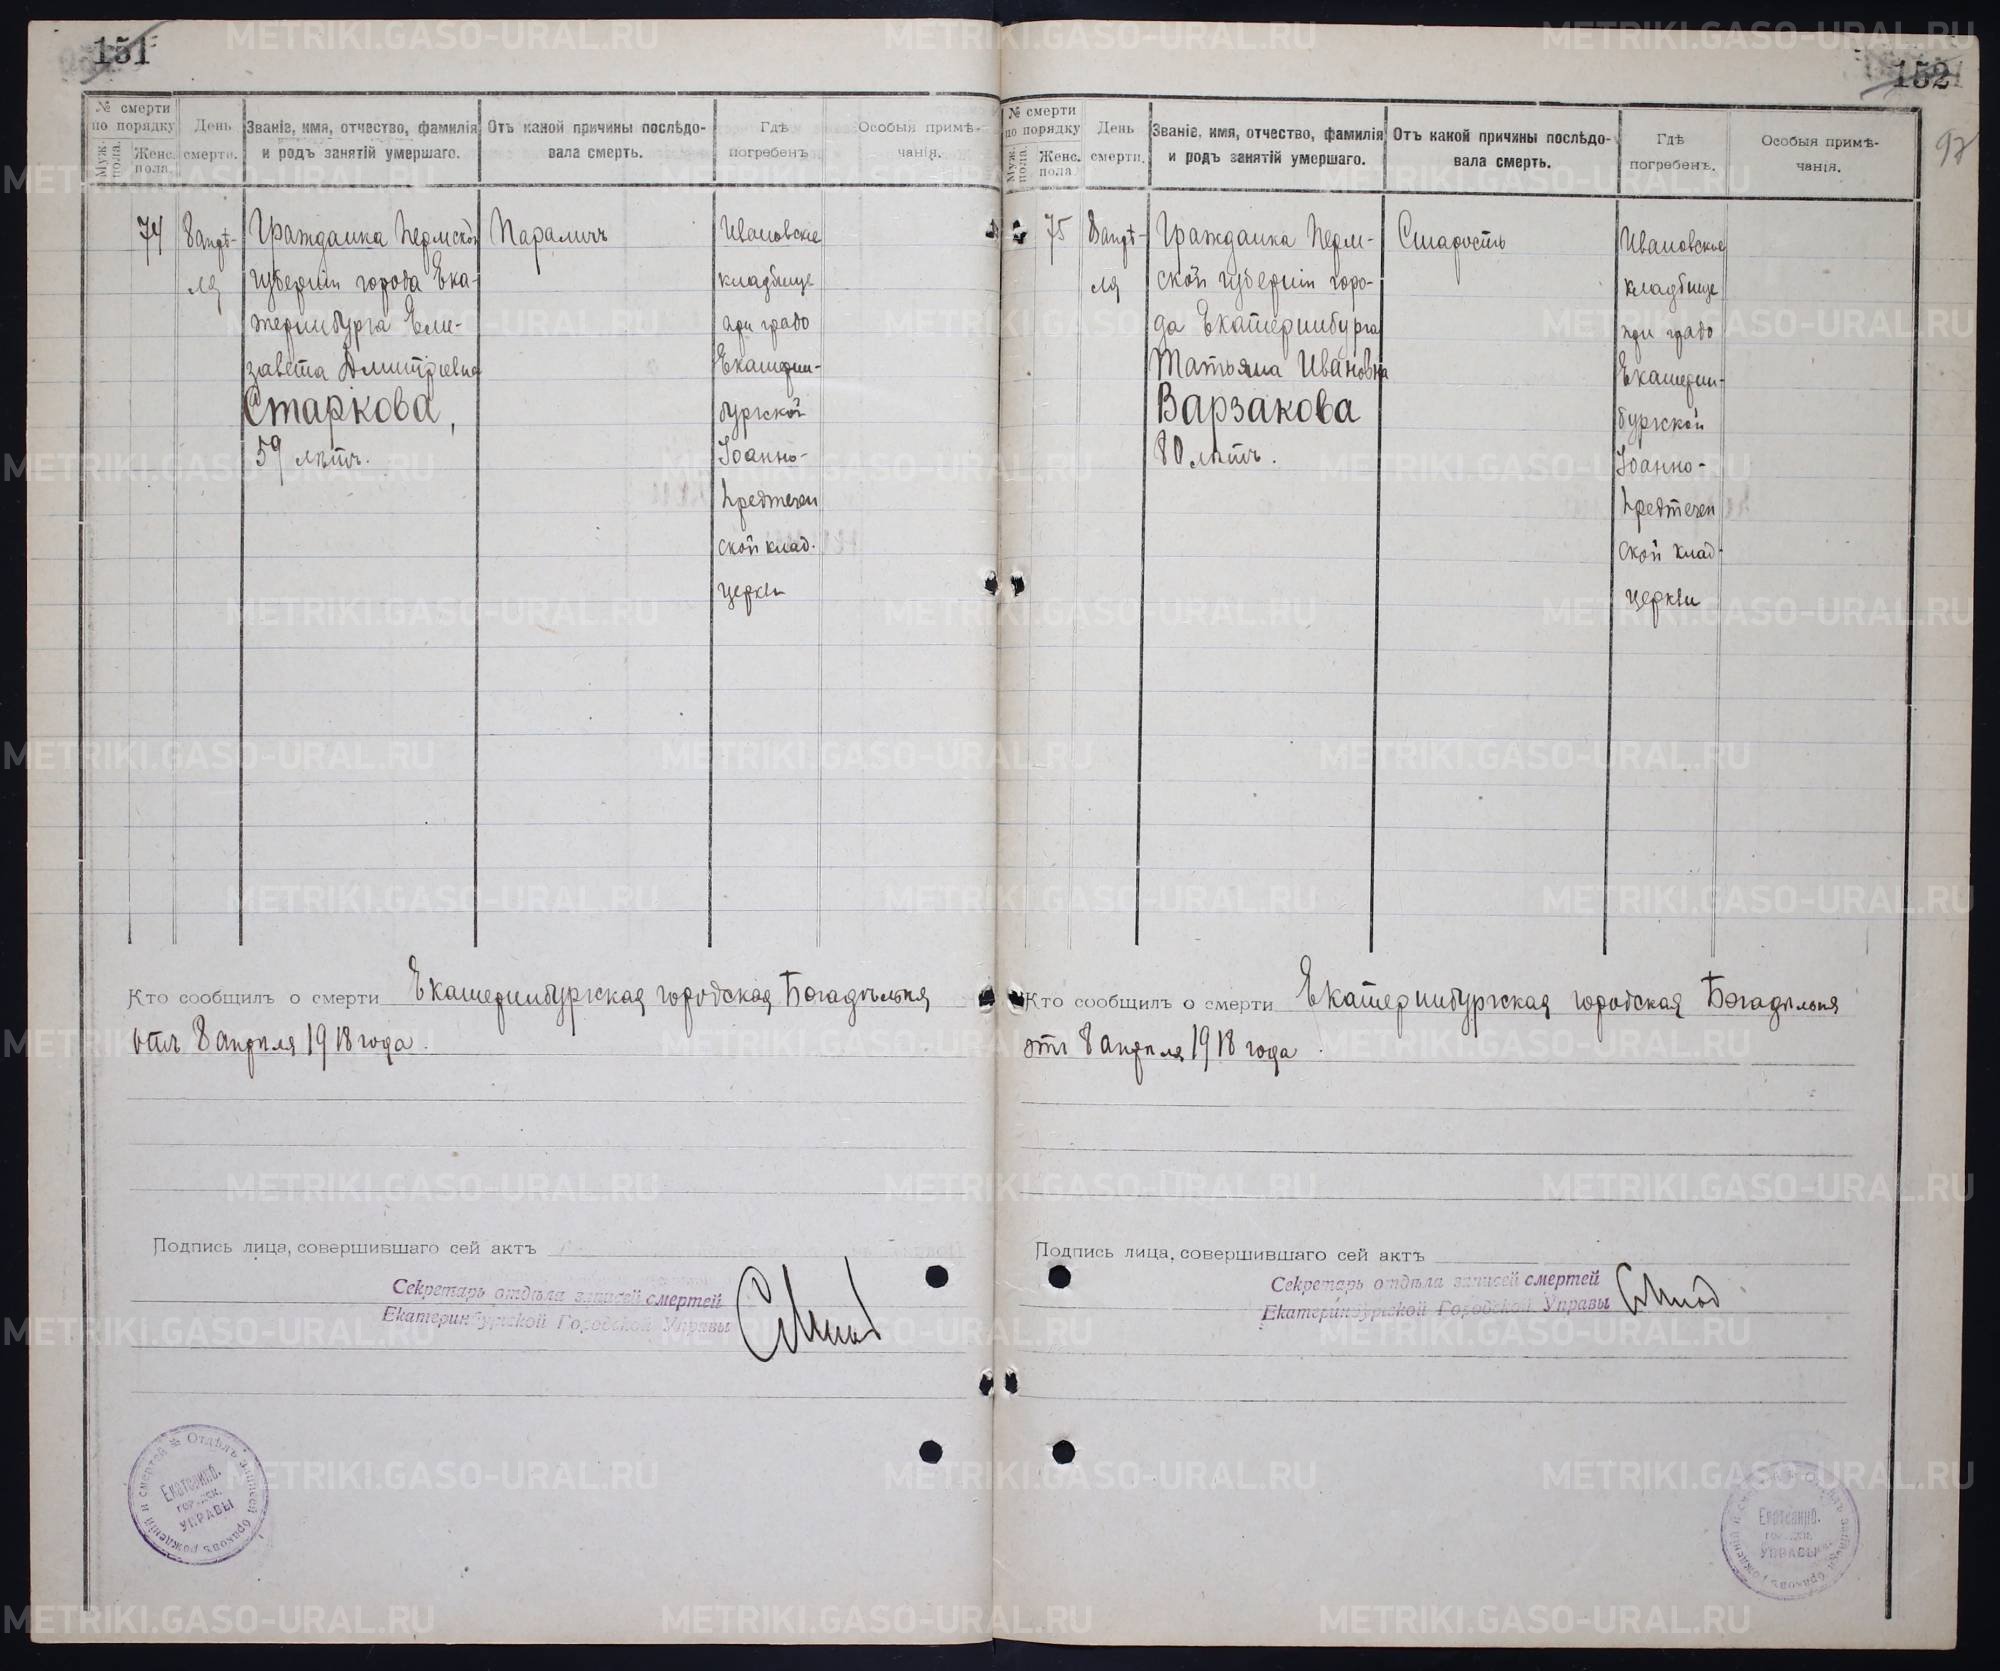 151
№ смерти
по порядку
Муж. пола.
Женс. пола.
День
смерти.
Званіе, имя, отчество, фамилія
и родъ занятій умершаго.
Отъ какой причины послѣдо-
вала смерть.
Гдѣ
погребенъ.
Особыя примѣ-
чанія.
74
8 апрѣ-
ля
Гражданка Пермской
губерніи города Ека-
теринбурга Ели-
завета Дмитріевна
Старкова,
59 лѣтъ.
Параличъ
Ивановское
кладбище
при градо
Екатерин-
бургской
Іоанно-
Предтечен
ской клад.
церкви
Кто сообщилъ о смерти Екатеринбургская городская Богадѣльня
отъ 8 апрѣля 1918 года.
Подпись лица, совершившаго сей актъ
Секретарь отдѣла записей смертей
Екатеринбургской Городской Управы
Отдѣлъ записей браковъ рожденій и смертей
Екатеринб.
городск.
УПРАВЫ
152
97
№ смерти
по порядку
Муж. пола.
Женс. пола.
День
смерти.
Званіе, имя, отчество, фамилія
и родъ занятій умершаго.
Отъ какой причины послѣдо-
вала смерть.
Гдѣ
погребенъ.
Особыя примѣ-
чанія.
75
8 апрѣ-
ля
Гражданка Перм-
ской губерніи горо-
да Екатеринбурга
Татьяна Ивановна
Варзакова
80 лѣтъ.
Старость
Ивановское
кладбище
при градо
Екатерин-
бургской
Іоанно-
Предтечен
ской клад-
церкви
Кто сообщилъ о смерти Екатеринбургская городская Богадѣльня
отъ 8 апрѣля 1918 года.
Подпись лица, совершившаго сей актъ
Секретарь отдѣла записей смертей
Екатеринбургской Городской Управы
Екатеринб.
городск.
УПРАВЫ
METRIKI.GASO-URAL.RU